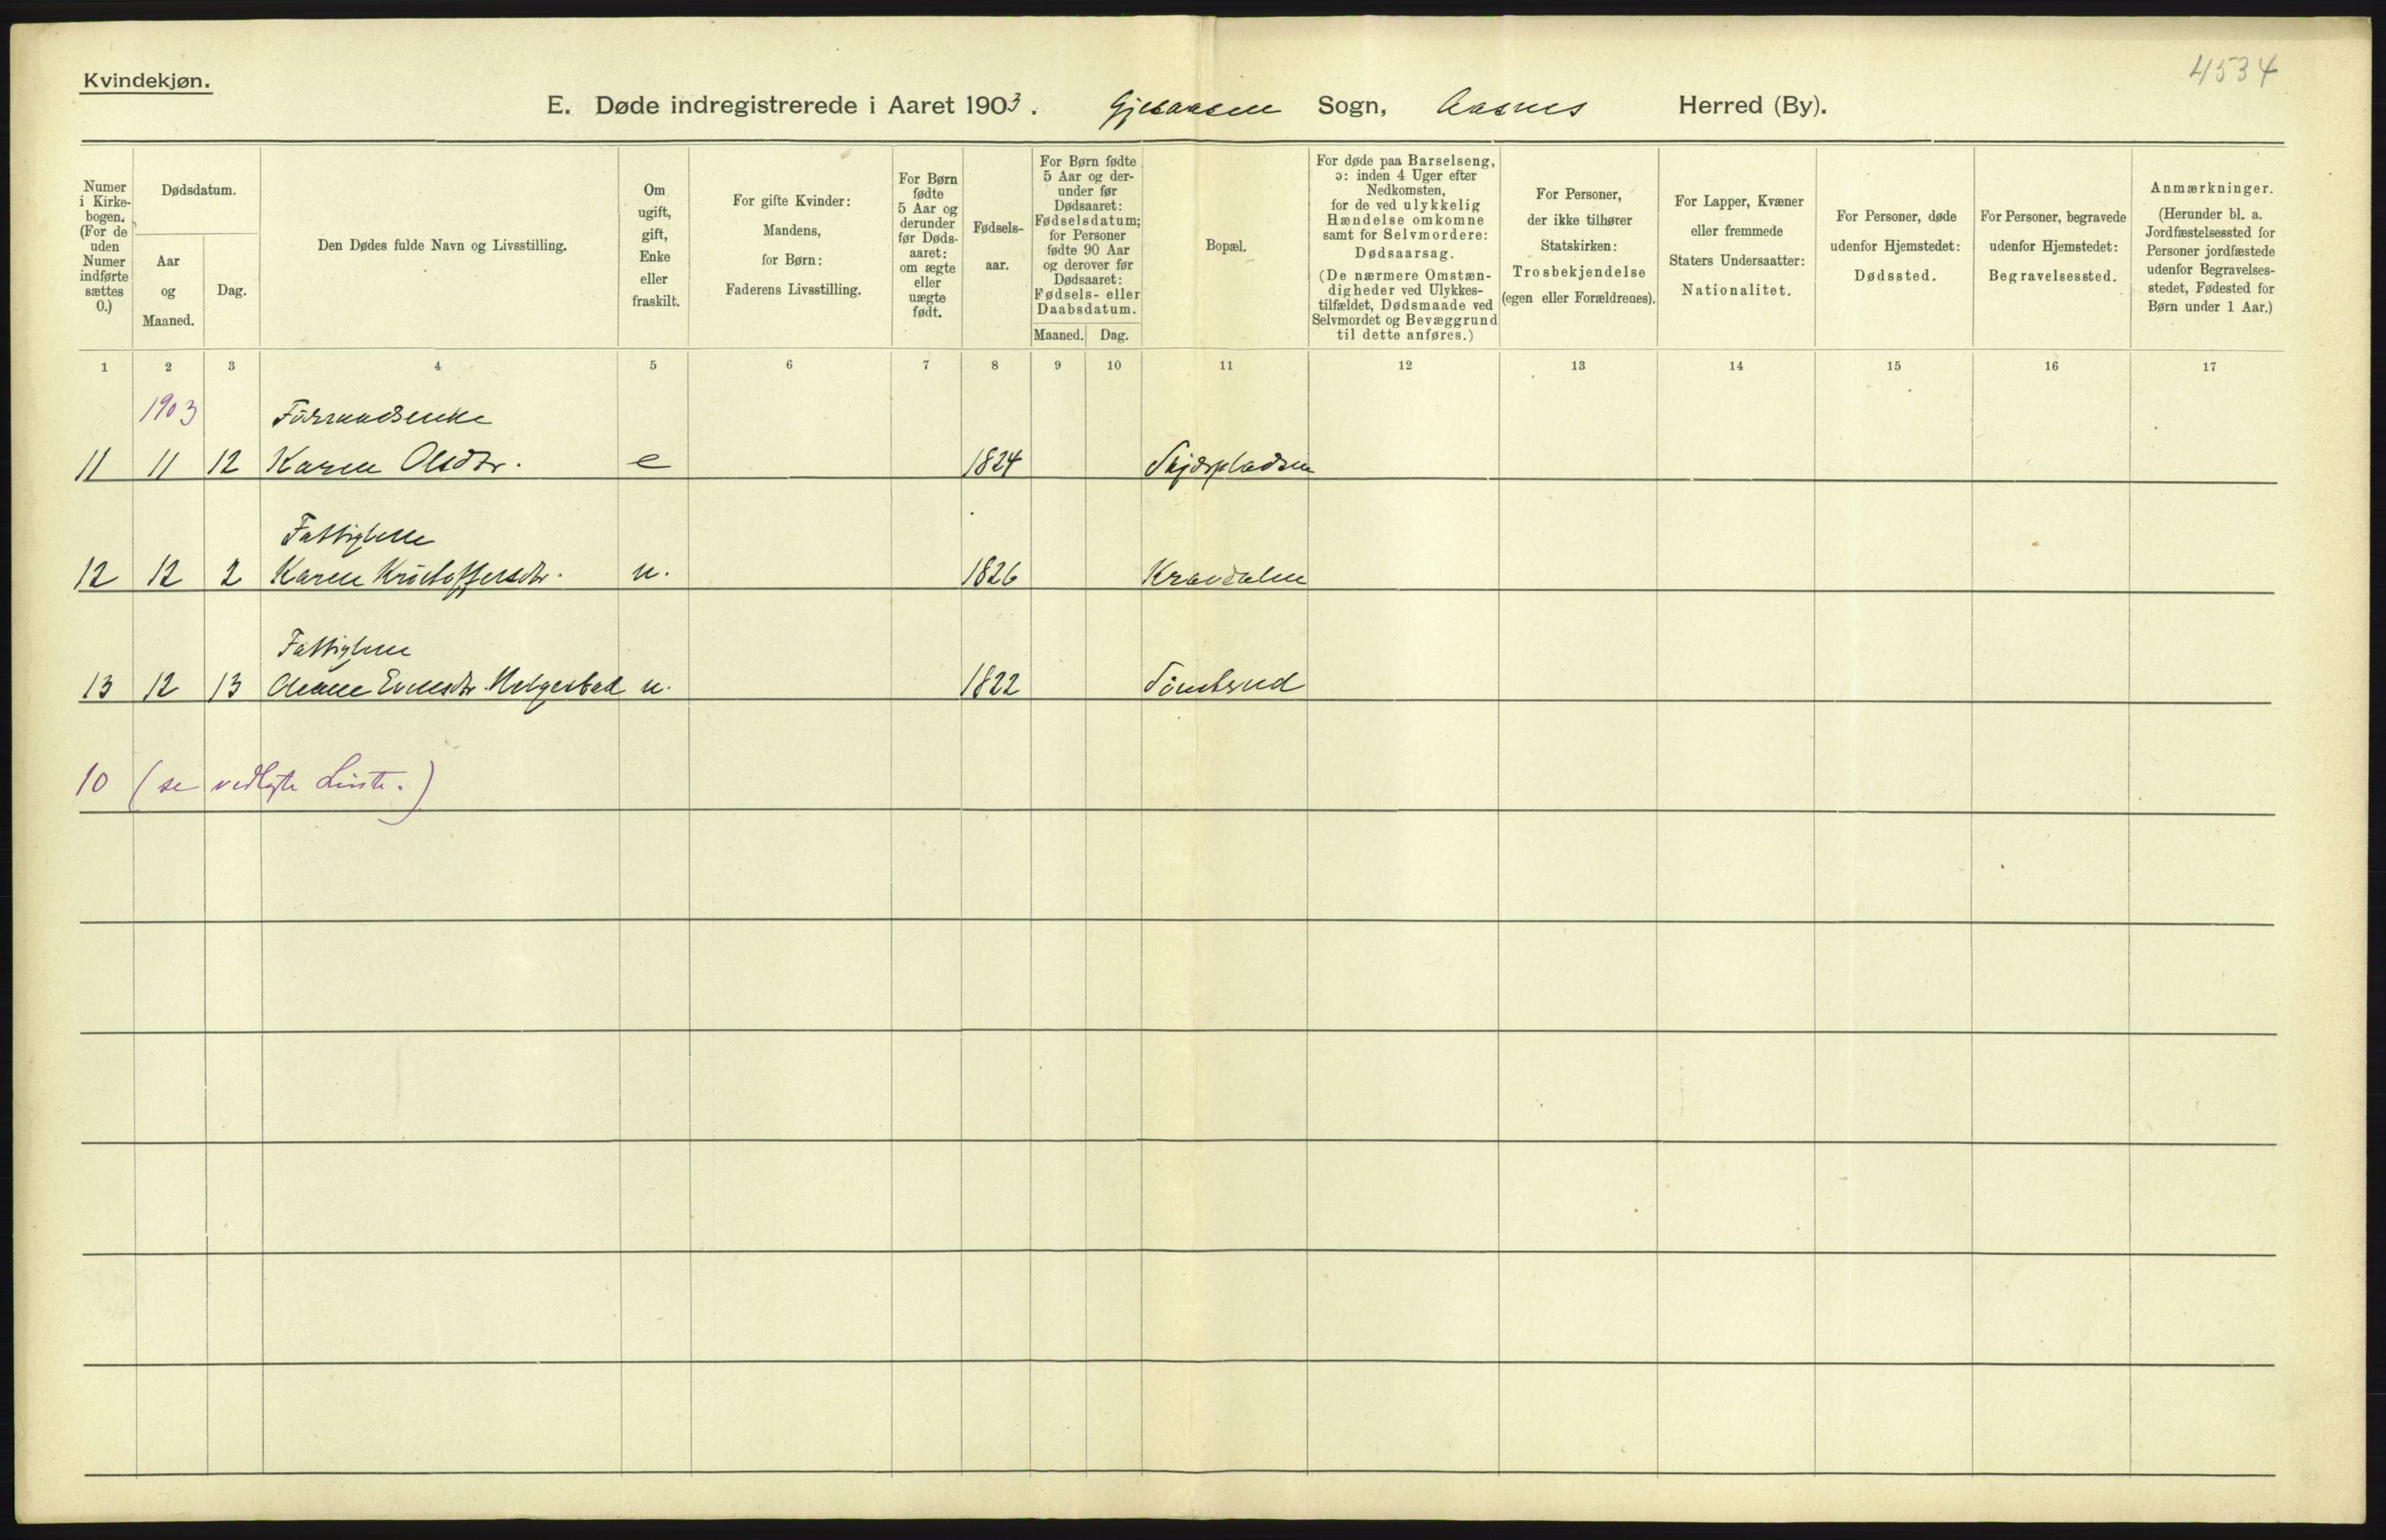 4534
Kvindekjøn.
E. Døde indregistrerede i Aaret 1903. Gjesaasen Sogn, Aasnes Herred (By).
Numer i Kirke-bogen. (For de uden Numer indførte sættes 0.)
Dødsdatum.
Aar og Maaned.
Dag.
Den Dødes fulde Navn og Livsstilling.
Om ugift, gift, Enke eller fraskilt.
For gifte Kvinder: Mandens, for Børn: Faderens Livsstilling.
For Børn fødte 5 Aar og derunder før Døds-aaret: om ægte eller uægte født.
Fødsels-aar.
For Børn fødte 5 Aar og der-under før Dødsaaret: Fødselsdatum; for Personer fødte 90 Aar og derover før Dødsaaret: Fødsels- eller Daabsdatum.
Maaned. Dag.
Bopæl.
For døde paa Barselseng, ɔ: inden 4 Uger efter Nedkomsten, for de ved ulykkelig Hændelse omkomne samt for Selvmordere: Dødsaarsag. (De nærmere Omstæn-digheder ved Ulykkes-tilfældet, Dødsmaade ved Selvmordet og Bevæggrund til dette anføres.)
For Personer, der ikke tilhører Statskirken: Trosbekjendelse (egen eller Forældrenes).
For Lapper, Kvæner eller fremmede Staters Undersaatter: Nationalitet.
For Personer, døde udenfor Hjemstedet: Dødssted.
For Personer, begravede udenfor Hjemstedet: Begravelsessted.
Anmærkninger. (Herunder bl. a. Jordfæstelsessted for Personer jordfæstede udenfor Begravelses-stedet, Fødested for Børn under 1 Aar.)
1 2 3 4 5 6 7 8 9 10 11 12 13 14 15 16 17
1903 Föderaadsenke
11 11 12 Karen Olsdtr. e 1824
Fattiglem
12 12 2 Karen Kristoffersdtr. u. 1826
Fattiglem
13 12 13 Evensdtr. u. 1822
10 (se vedlagte Liste.)